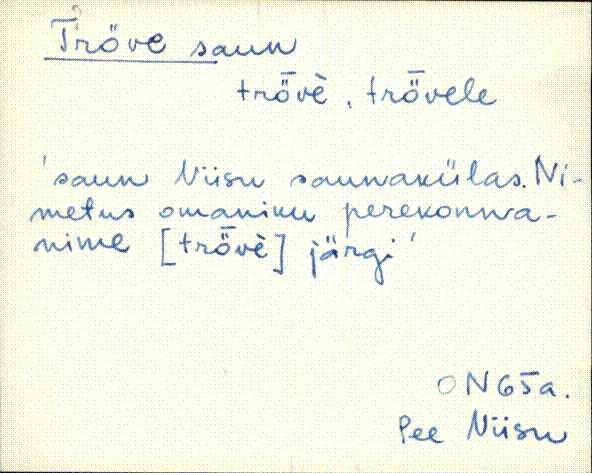 Tröve saun
trȫvè, trȫvele
'saun Niisu saunakülas. Ni-
metus omaniku perekonna-
nime [trȫvè] järgi'
ON 65a.
Pee Niisu